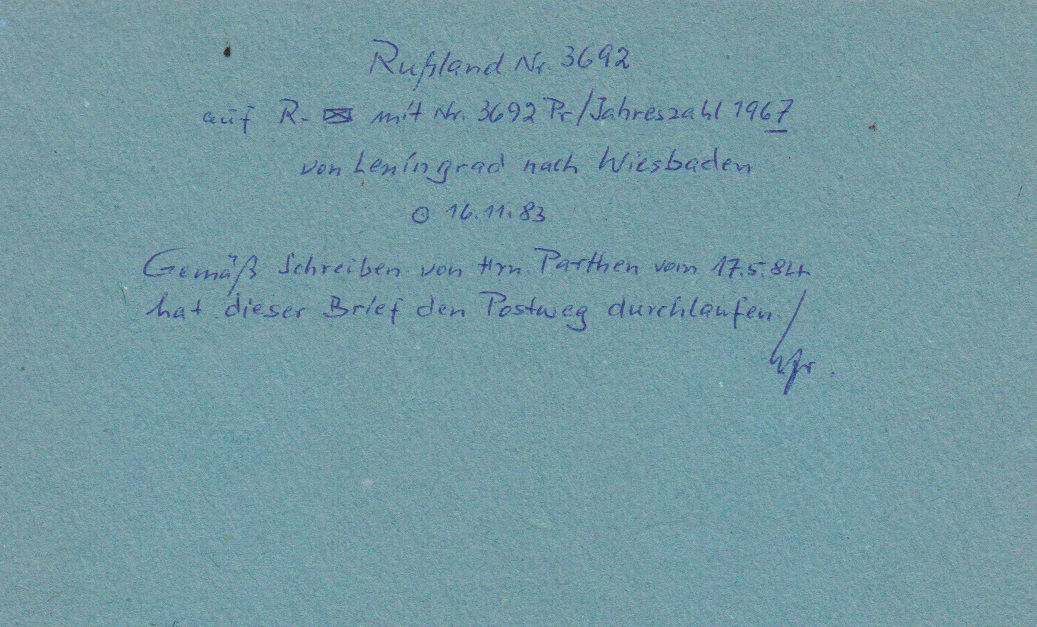 Rußland Nr. 3692
auf R- ✉ mit Nr. 3692 Pr/Jahreszahl 1967
von Leningrad nach Wiesbaden
⊙ 16.11.83
Gemäß Schreiben von Hrn. Parthen vom 17.5.84
hat dieser Brief den Postweg durchlaufen.